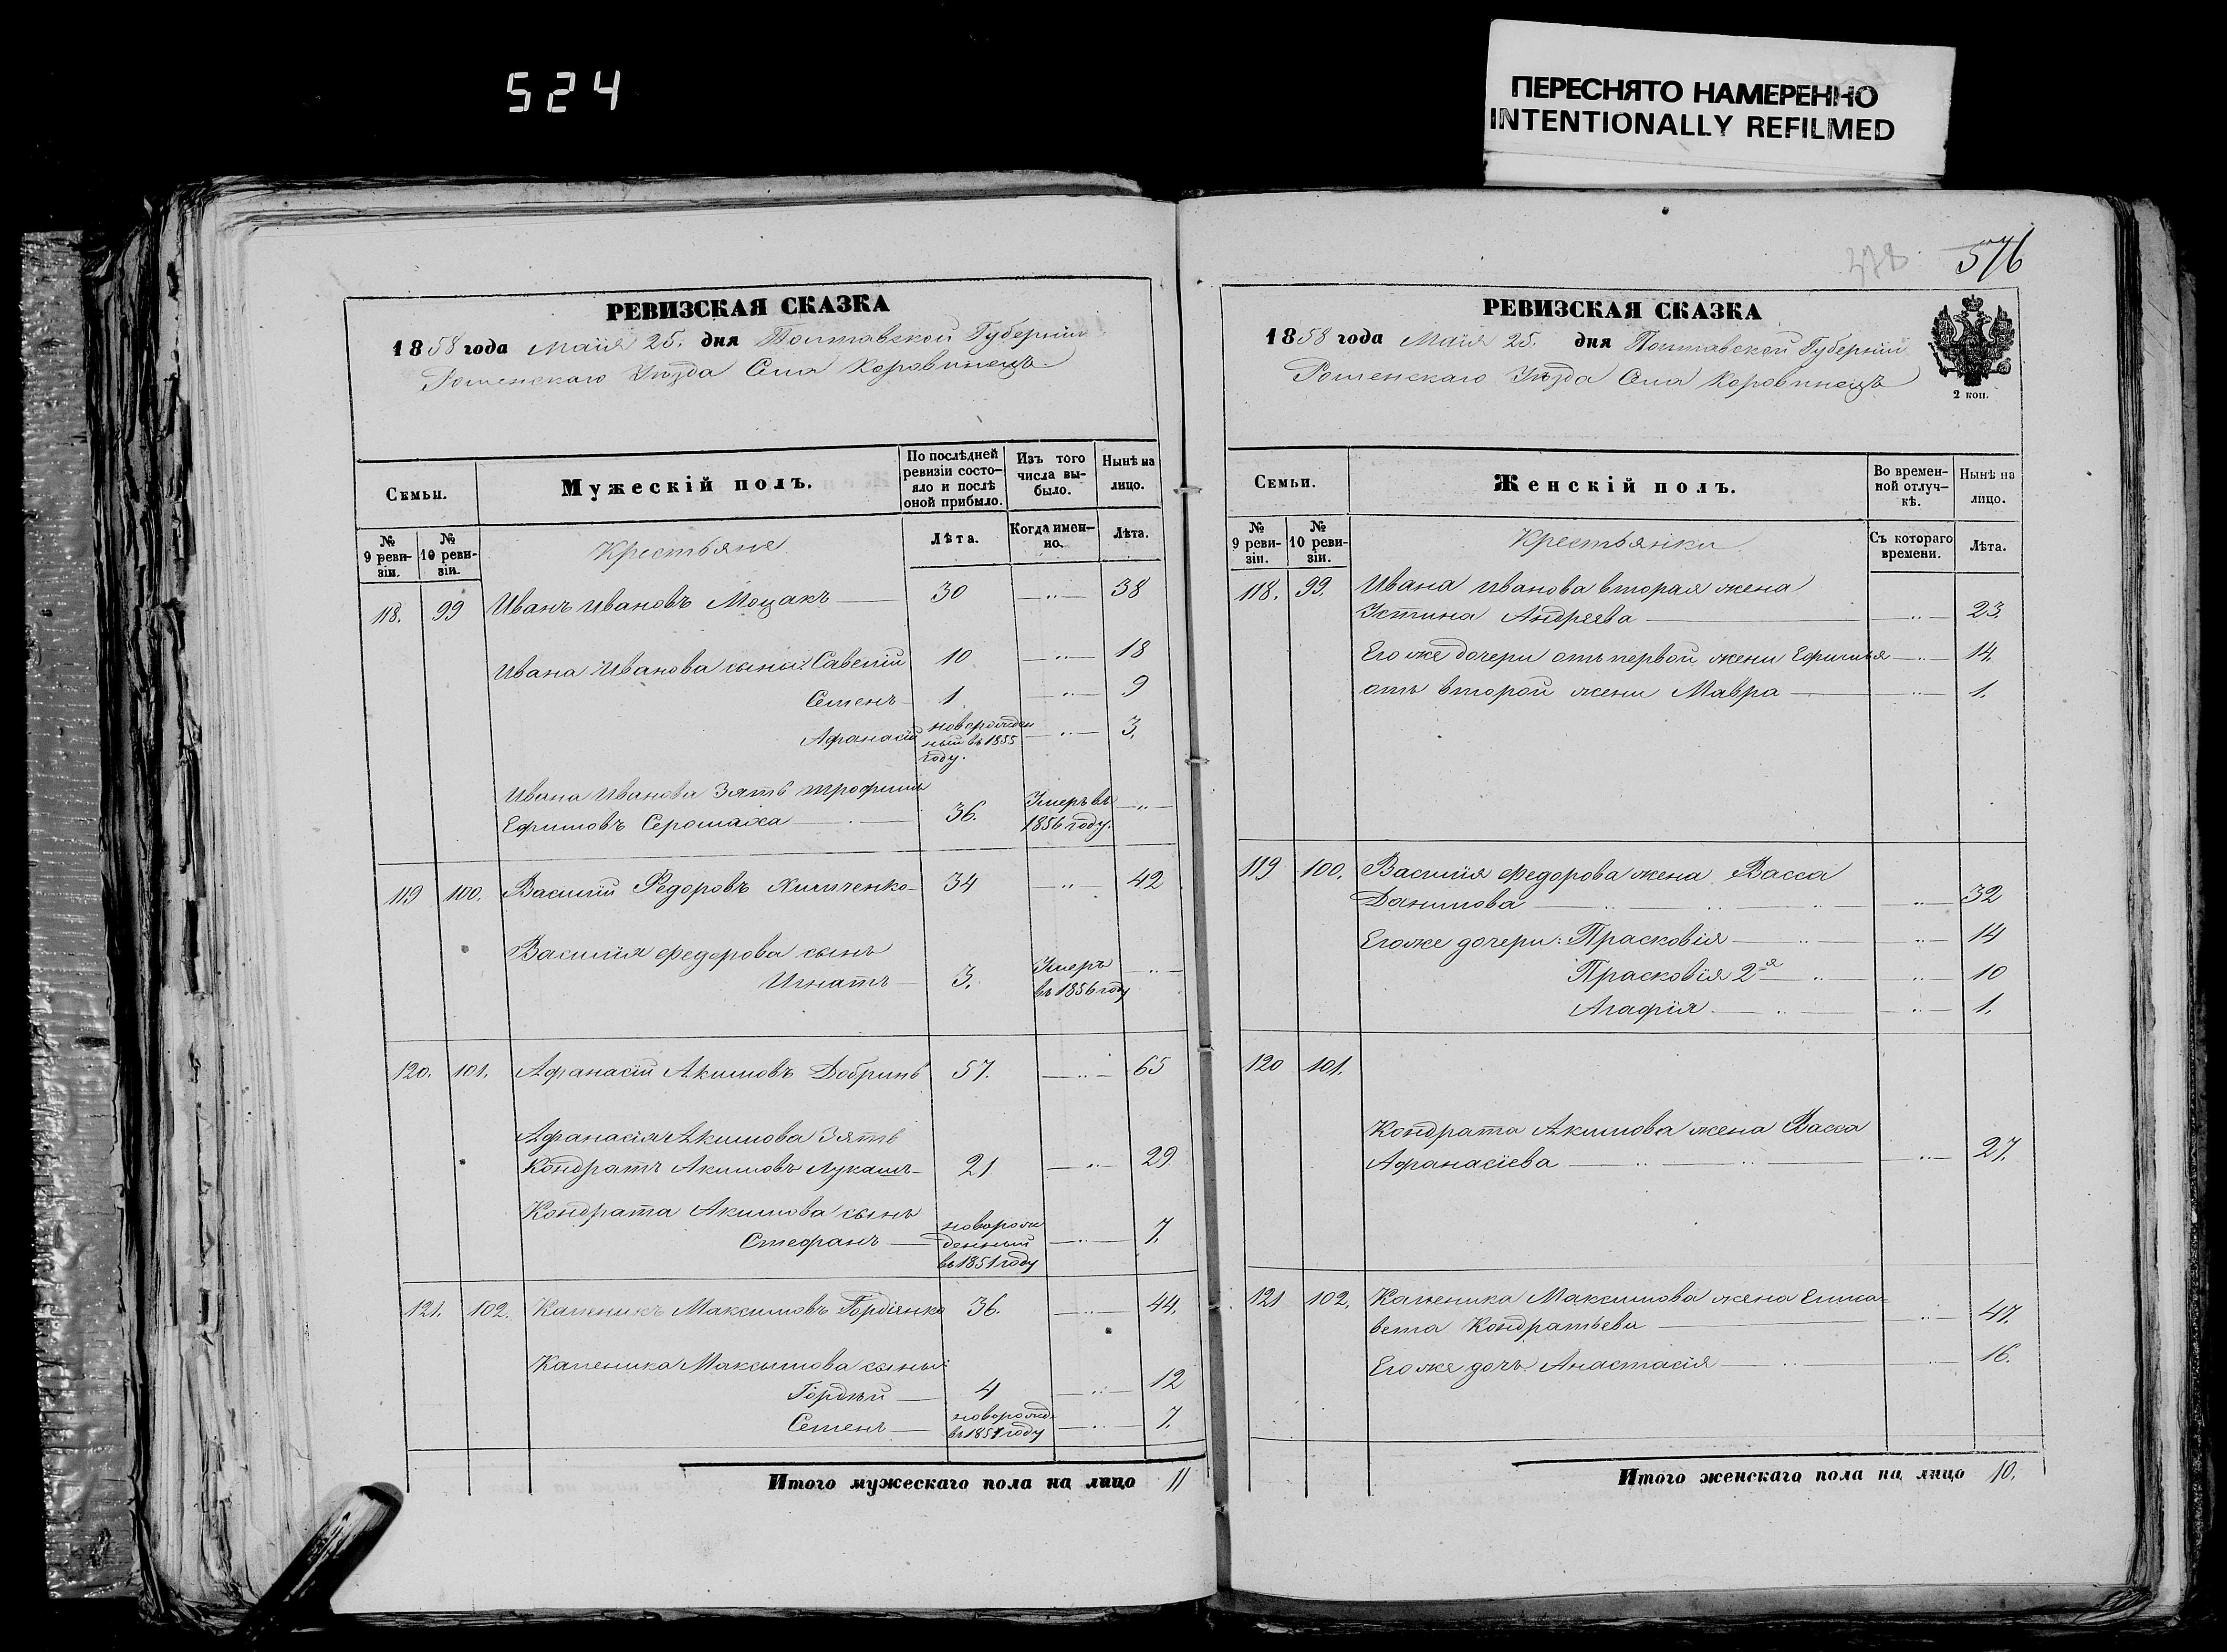 524
ПЕРЕСНЯТО НАМЕРЕННО
INTENTIONALLY REFILMED
РЕВИЗСКАЯ СКАЗКА
1858 года Маія 25. дня Полтавской Губерніи
Роменскаго Уѣзда Села Коровинецъ.
Семьи.
Мужескій полъ.
По послѣдней ревизіи состо-
яло и послѣ оной прибыло.
Изъ того числа вы-
было.
Нынѣ на лицо.
№ 9 реви-
зіи.
№ 10 реви-
зіи.
Крестьяне
Лѣта.
Когда имен-
но.
Лѣта.
118. 99 Иванъ Ивановъ Моцакъ 30 — „ — 38
Ивана Иванова сыны: Савелій 10 — „ — 18
Семенъ 1 — „ — 9
Афанасій новорожден
ный въ 1855
году. — „ — 3.
Ивана Иванова Зять Трофимъ
Ефимовъ Серомаха 36. Умеръ въ
1856 году. — „ —
119 100. Василій Федоровъ Хильченко 34 — „ — 42
Василія Федорова сынъ
Игнатъ 3. Умеръ
въ 1856 году — „ —
120. 101. Афанасій Акимовъ Добринь 57. — „ — 65
Афанасія Акимова Зять
Кондратъ Акимовъ Лукашъ 21 — „ — 29
Кондрата Акимова сынъ
Стефанъ новорож
денный
въ 1851 году — „ — 7.
121. 102. Каленикъ Максимовъ Гордіенко 36. — „ — 44.
Каленика Максимова сыны:
Гордѣй 4 — „ — 12
Семенъ новорожд.
въ 1851 году — „ — 7.
Итого мужескаго пола на лицо 11
576
РЕВИЗСКАЯ СКАЗКА
1858 года Маія 25. дня Полтавской Губерніи
Роменскаго Уѣзда Села Коровинецъ
2 коп.
Семьи.
Женскій полъ.
Во времен-
ной отлуч-
кѣ.
Нынѣ на лицо.
№ 9 реви-
зіи.
№ 10 реви-
зіи.
Крестьянки
Съ котораго времени.
Лѣта.
118. 99. Ивана Иванова вторая жена
Устина Андреева — „ — 23.
Его же дочери отъ первой жены Ефимья — „ — 14.
отъ второй жены Мавра — „ — 1.
119 100. Василія Федорова жена Васса
Данилова — „ — 32
Его же дочери: Прасковія — „ — 14
Прасковія 2я — „ — 10
Агафія — „ — 1.
120 101.
Кондрата Акимова жена Васса
Афанасіева — „ — 27.
121 102. Каленика Максимова жена Елиса-
вета Кондратьева — „ — 47.
Его же дочь Анастасія — „ — 16.
Итого женскаго пола на лицо 10.